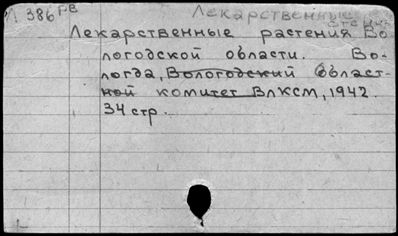 Л 386 РВ Лекарственные
Лекарственные растения Во-
логодской области. Во-
логда, Вологодский област-
ной комитет ВЛКСМ, 1942.
34 стр.